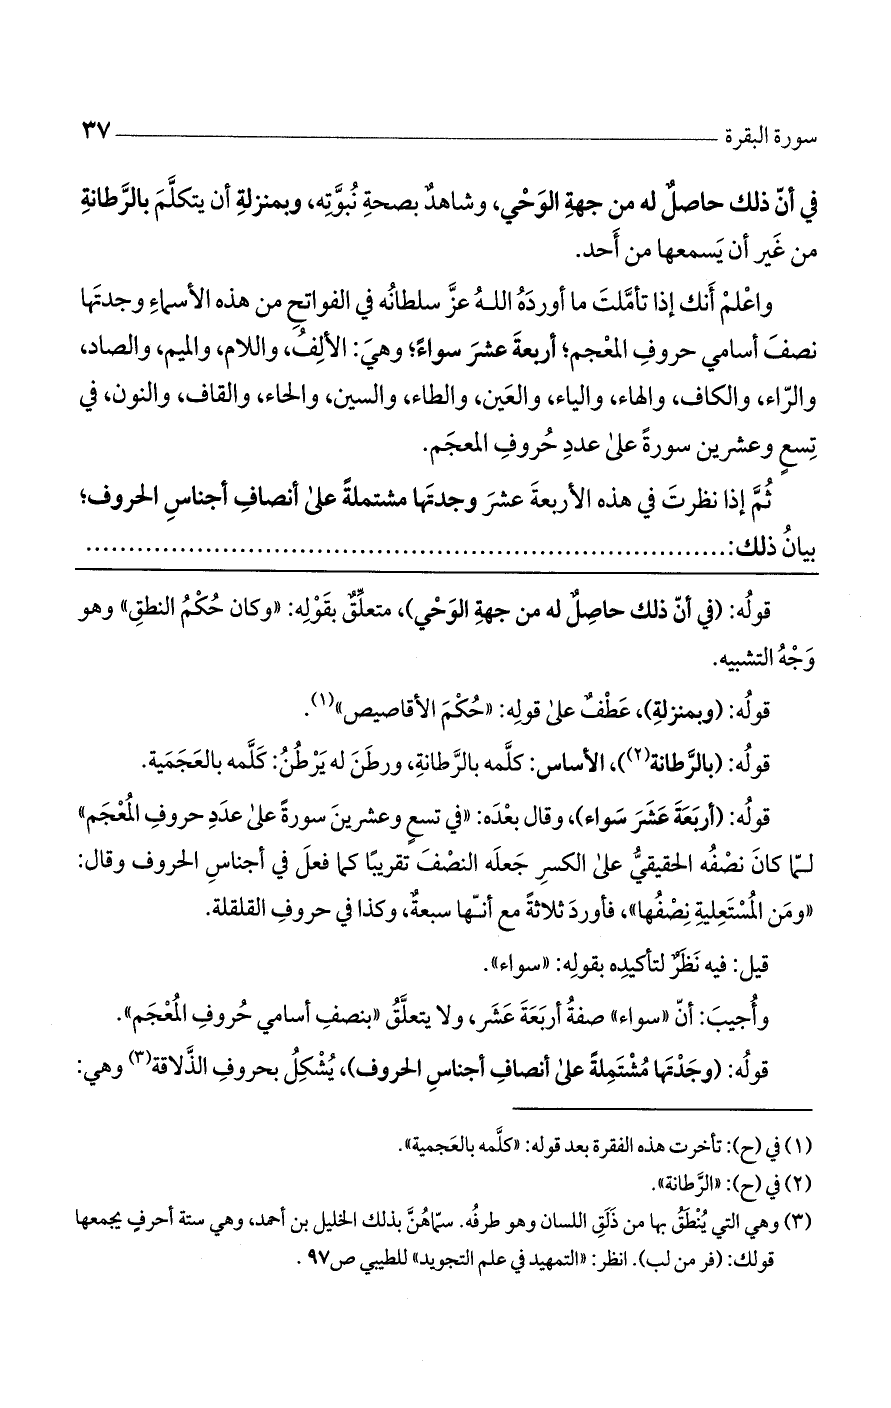 سورة البقرة ٣٧
في أنّ ذلك حاصلٌ له من جهةِ الوَحْي، وشاهدٌ بصحةِ نُبوَّتِه، وبمنزلةِ أن يتكلَّمَ بالرَّطانةِ
من غَير أن يَسمعها من أَحد.
واعْلمْ أَنك إذا تأمَّلتَ ما أوردَهُ اللهُ عزَّ سلطانُه في الفواتحِ من هذه الأسماءِ وجدتَها
نصفَ أسامي حروفِ المعْجم؛ أربعةَ عشرَ سواءً؛ وهيَ: الألِفُ، واللام، والميم، والصاد،
والرّاء، والكاف، والهاء، والياء، والعَين، والطاء، والسين، والحاء، والقاف، والنون، في
تِسعٍ وعشرين سورةً علىٰ عددِ حُروفِ المعجَم.
ثُمَّ إذا نظرتَ في هذه الأربعةَ عشرَ وجدتَها مشتملةً علىٰ أنصافِ أجناسِ الحروف؛
بيانُ ذلك:..........................................................................
قولُه: (في أنّ ذلك حاصِلٌ له من جهةِ الوَحْي)، متعلِّقٌ بقَوْلِه: «وكان حُكْمُ النطقِ» وهو
وَجْهُ التشبيه.
قولُه: (وبمنزلةِ)، عَطْفٌ علىٰ قولِه: «حُكْمَ الأقاصيص»(١).
قولُه: (بالرَّطانة(٢))، الأساس: كلَّمه بالرَّطانةِ، ورطَنَ له يَرْطُنُ: كَلَّمه بالعَجَمَية.
قولُه: (أربَعَةَ عَشَرَ سَواء)، وقال بعْدَه: «في تسعٍ وعشرينَ سورةً علىٰ عدَدِ حروفِ المُعْجَم»
لمّا كانَ نصْفُه الحقيقيُّ علىٰ الكسرِ جَعلَه النصْفَ تقريبًا كما فعلَ في أجناسِ الحروف وقال:
«ومَن المُسْتَعِليةِ نِصْفُها»، فأوردَ ثلاثةً مع أنّها سبعةٌ، وكذا في حروفِ القلقلة.
قيل: فيه نَظَرٌ لتأكيدِه بقولِه: «سواء».
وأُجيبَ: أنّ «سواء» صفةُ أربَعَةَ عَشَر، ولا يتعلَّقُ «بنصفِ أسامي حُروفِ المُعْجَم».
قولُه: (وجَدْتَها مُشْتَمِلةً علىٰ أنصافِ أجناسِ الحروف)، يُشْكِلُ بحروفِ الذَّلاقة(٣) وهي:
(١) في (ح): تأخرت هذه الفقرة بعد قوله: «كلَّمه بالعَجمية».
(٢) في (ح): «الرَّطانة».
(٣) وهي التي يُنْطَقُ بها من ذَلَقِ اللسان وهو طرفُه. سمّاهُنَّ بذلك الخليل بن أحمد، وهي ستة أحرفٍ يجمعها
قولك: (فر من لب). انظر: «التمهيد في علم التجويد» للطيبي ص٩٧ .